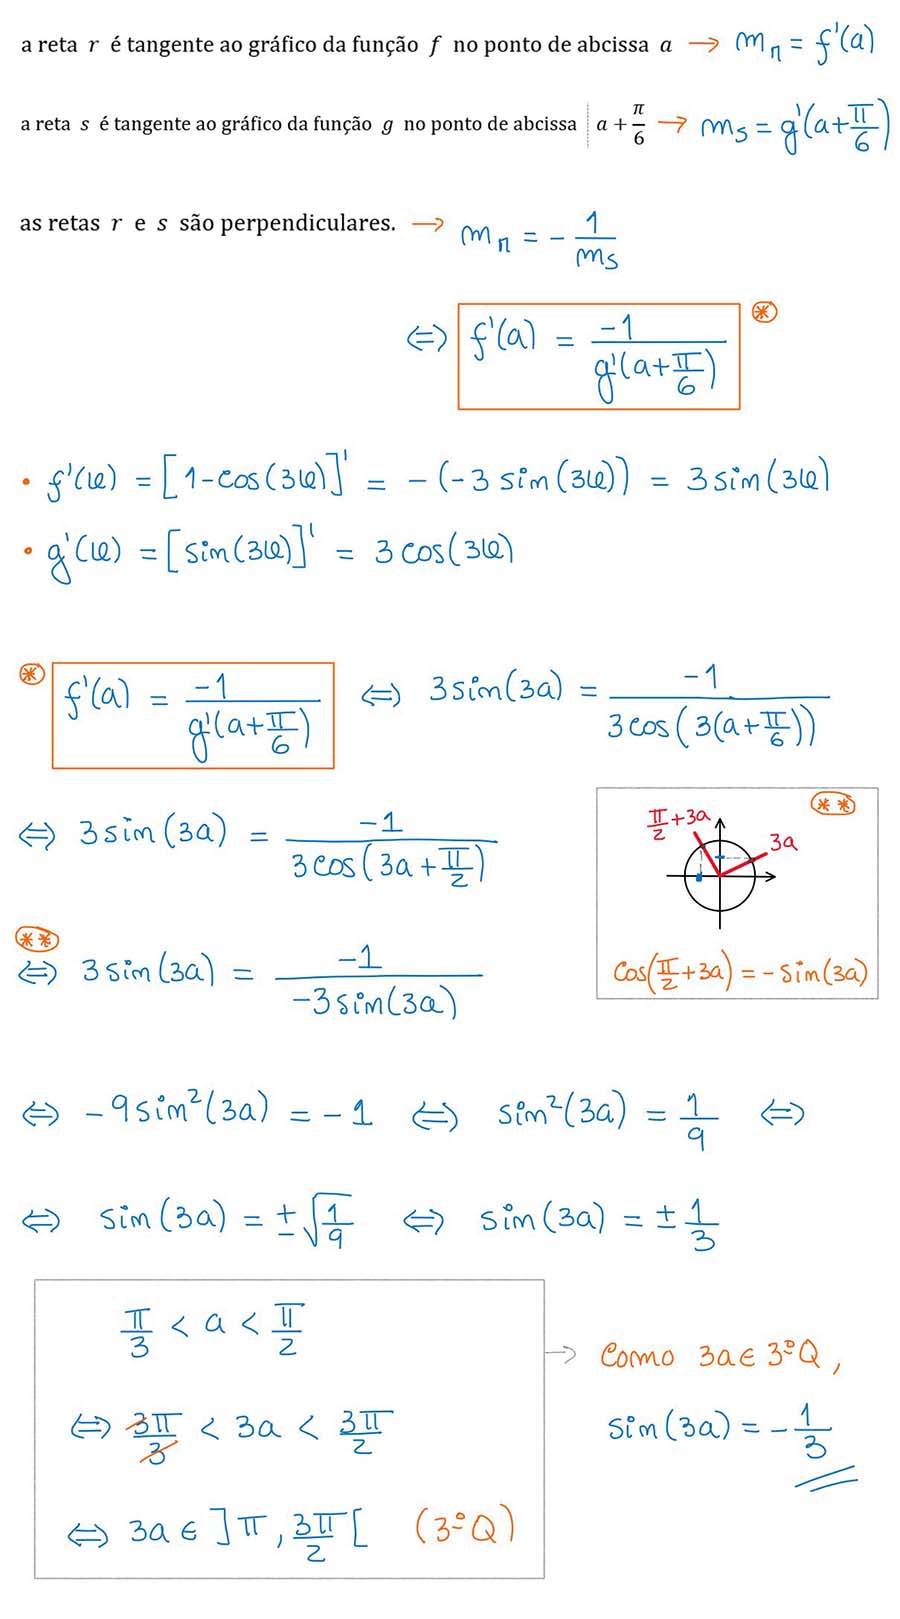 a reta r é tangente ao gráfico da função f no ponto de abcissa a → m_r = f'(a)
a reta s é tangente ao gráfico da função g no ponto de abcissa a + π/6 → m_s = g'(a+π/6)
as retas r e s são perpendiculares. → m_r = - 1/m_s
⇔ f'(a) = -1/g'(a+π/6) (*)
• f'(x) = [1-cos(3x)]' = -(-3 sin(3x)) = 3 sin(3x)
• g'(x) = [sin(3x)]' = 3 cos(3x)
(*) f'(a) = -1/g'(a+π/6) ⇔ 3 sin(3a) = -1/3cos(3(a+π/6))
⇔ 3 sin(3a) = -1/3cos(3a+π/2)
(**)
π/2+3a
3a
cos(π/2+3a) = -sin(3a)
(**)
⇔ 3 sin(3a) = -1/-3sin(3a)
⇔ -9sin²(3a) = -1 ⇔ sin²(3a) = 1/9 ⇔
⇔ sin(3a) = ±√(1/9) ⇔ sin(3a) = ± 1/3
π/3 < a < π/2
⇔ 3π/3 < 3a < 3π/2
⇔ 3a ∈ ]π, 3π/2[ (3ºQ)
→ Como 3a ∈ 3ºQ,
sin(3a) = - 1/3